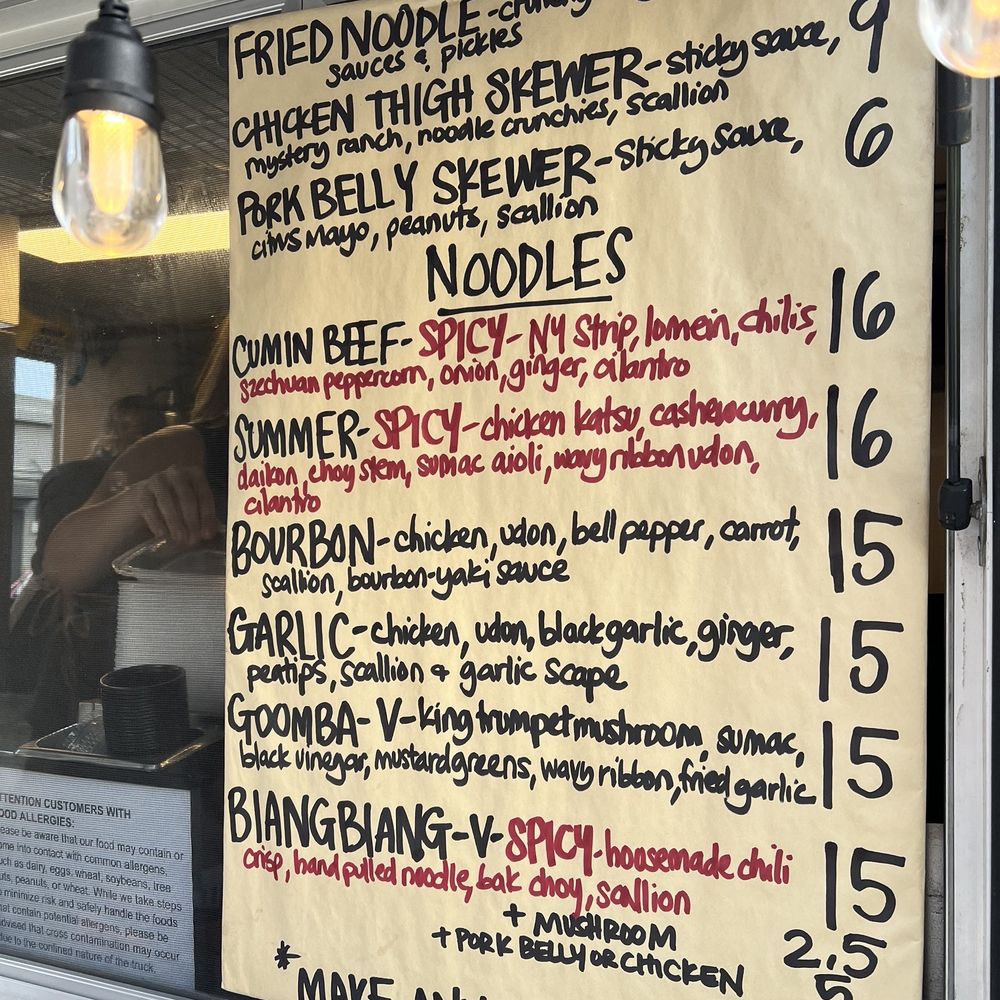 FRIED NOODLE - crunchy
sauces & pickles
9
CHICKEN THIGH SKEWER - sticky sauce,
mystery ranch, noodle crunchies, scallion
6
PORK BELLY SKEWER - sticky sauce,
citrus mayo, peanuts, scallion
NOODLES
CUMIN BEEF - SPICY - NY Strip, lomein, chilis, 16
szechuan peppercorn, onion, ginger, cilantro
SUMMER - SPICY - chicken katsu, cashew curry, 16
daikon, choy stem, sumac aioli, wavy ribbon udon,
cilantro
BOURBON - chicken, udon, bell pepper, carrot, 15
scallion, bourbon-yaki sauce
GARLIC - chicken, udon, black garlic, ginger, 15
peatips, scallion & garlic scape
GOOMBA - V - king trumpet mushroom, sumac, 15
black vinegar, mustard greens, wavy ribbon, fried garlic
BIANGBIANG - V - SPICY - housemade chili 15
crisp, hand pulled noodle, bok choy, scallion
+ MUSHROOM 2.5
+ PORK BELLY OR CHICKEN 5
* MAKE
TTENTION CUSTOMERS WITH
OOD ALLERGIES:
ease be aware that our food may contain or
ome into contact with common allergens,
uch as dairy, eggs, wheat, soybeans, tree
uts, peanuts, or wheat. While we take steps
o minimize risk and safely handle the foods
hat contain potential allergens, please be
dvised that cross contamination may occur
due to the confined nature of the truck.